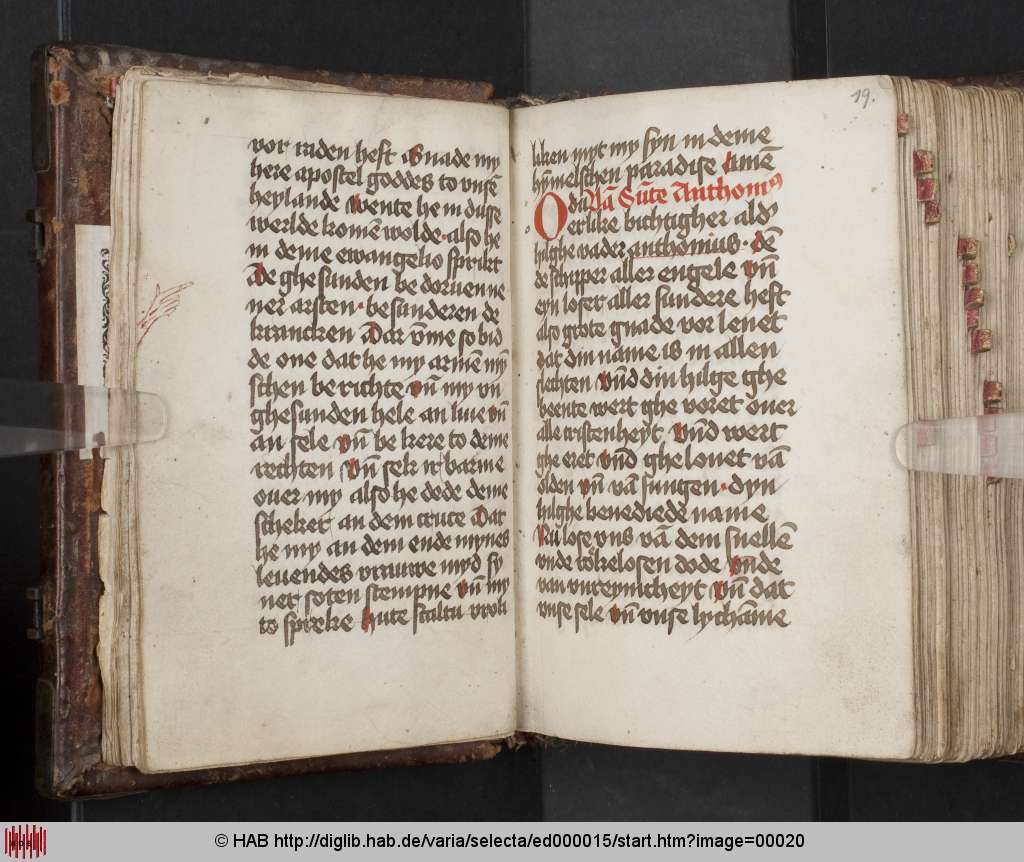 vor raden heft Gnade my
here apostel goddes to vnsē
heylande wente he in dusse
werlde komē wolde · also he
in deme ewangelio sprikt
De ghesunden bedoruen ne
ner arsten · besunderen de
krancken Dar vm̄e so bid
de one dat he my armē mȳ
schen berichte vn̄ my vn
ghesunden hele an liue vn̄
an sele vn̄ bekere to deme
rechten vn̄ sek ir barme
ouer my also he dede deme
scheker an dem cruce Dat
he my an dem ende mynes
leuendes vrauwe myd sy
ner soten stempne vn̄ my
to spreke hute scaltu vroli
19.
liken myt my syn in deme
hȳmelschen paradise Amē
Vā Sūte Anthoniꝰ
O du
erlike bichtigher alde
hilghe vader anthonius · Dē
de schipper aller engele vn̄
eyn loser aller sundere heft
also grote gnade vorlenet
dat din name is in allen
slechten vn̄d din hilge ghe
beente wert ghe voret ouer
alle cristenheyt vn̄d wert
ghe eret vn̄d ghelouet vā
olden vn̄ vā iungen · dyn
hilghe benediede name
Nu lose vns vā dem snellē
vnde rokelosen dode vn̄de
van vnreynicheyt vn̄ dat
vnse sele vn̄ vnse lychāme
© HAB http://diglib.hab.de/varia/selecta/ed000015/start.htm?image=00020